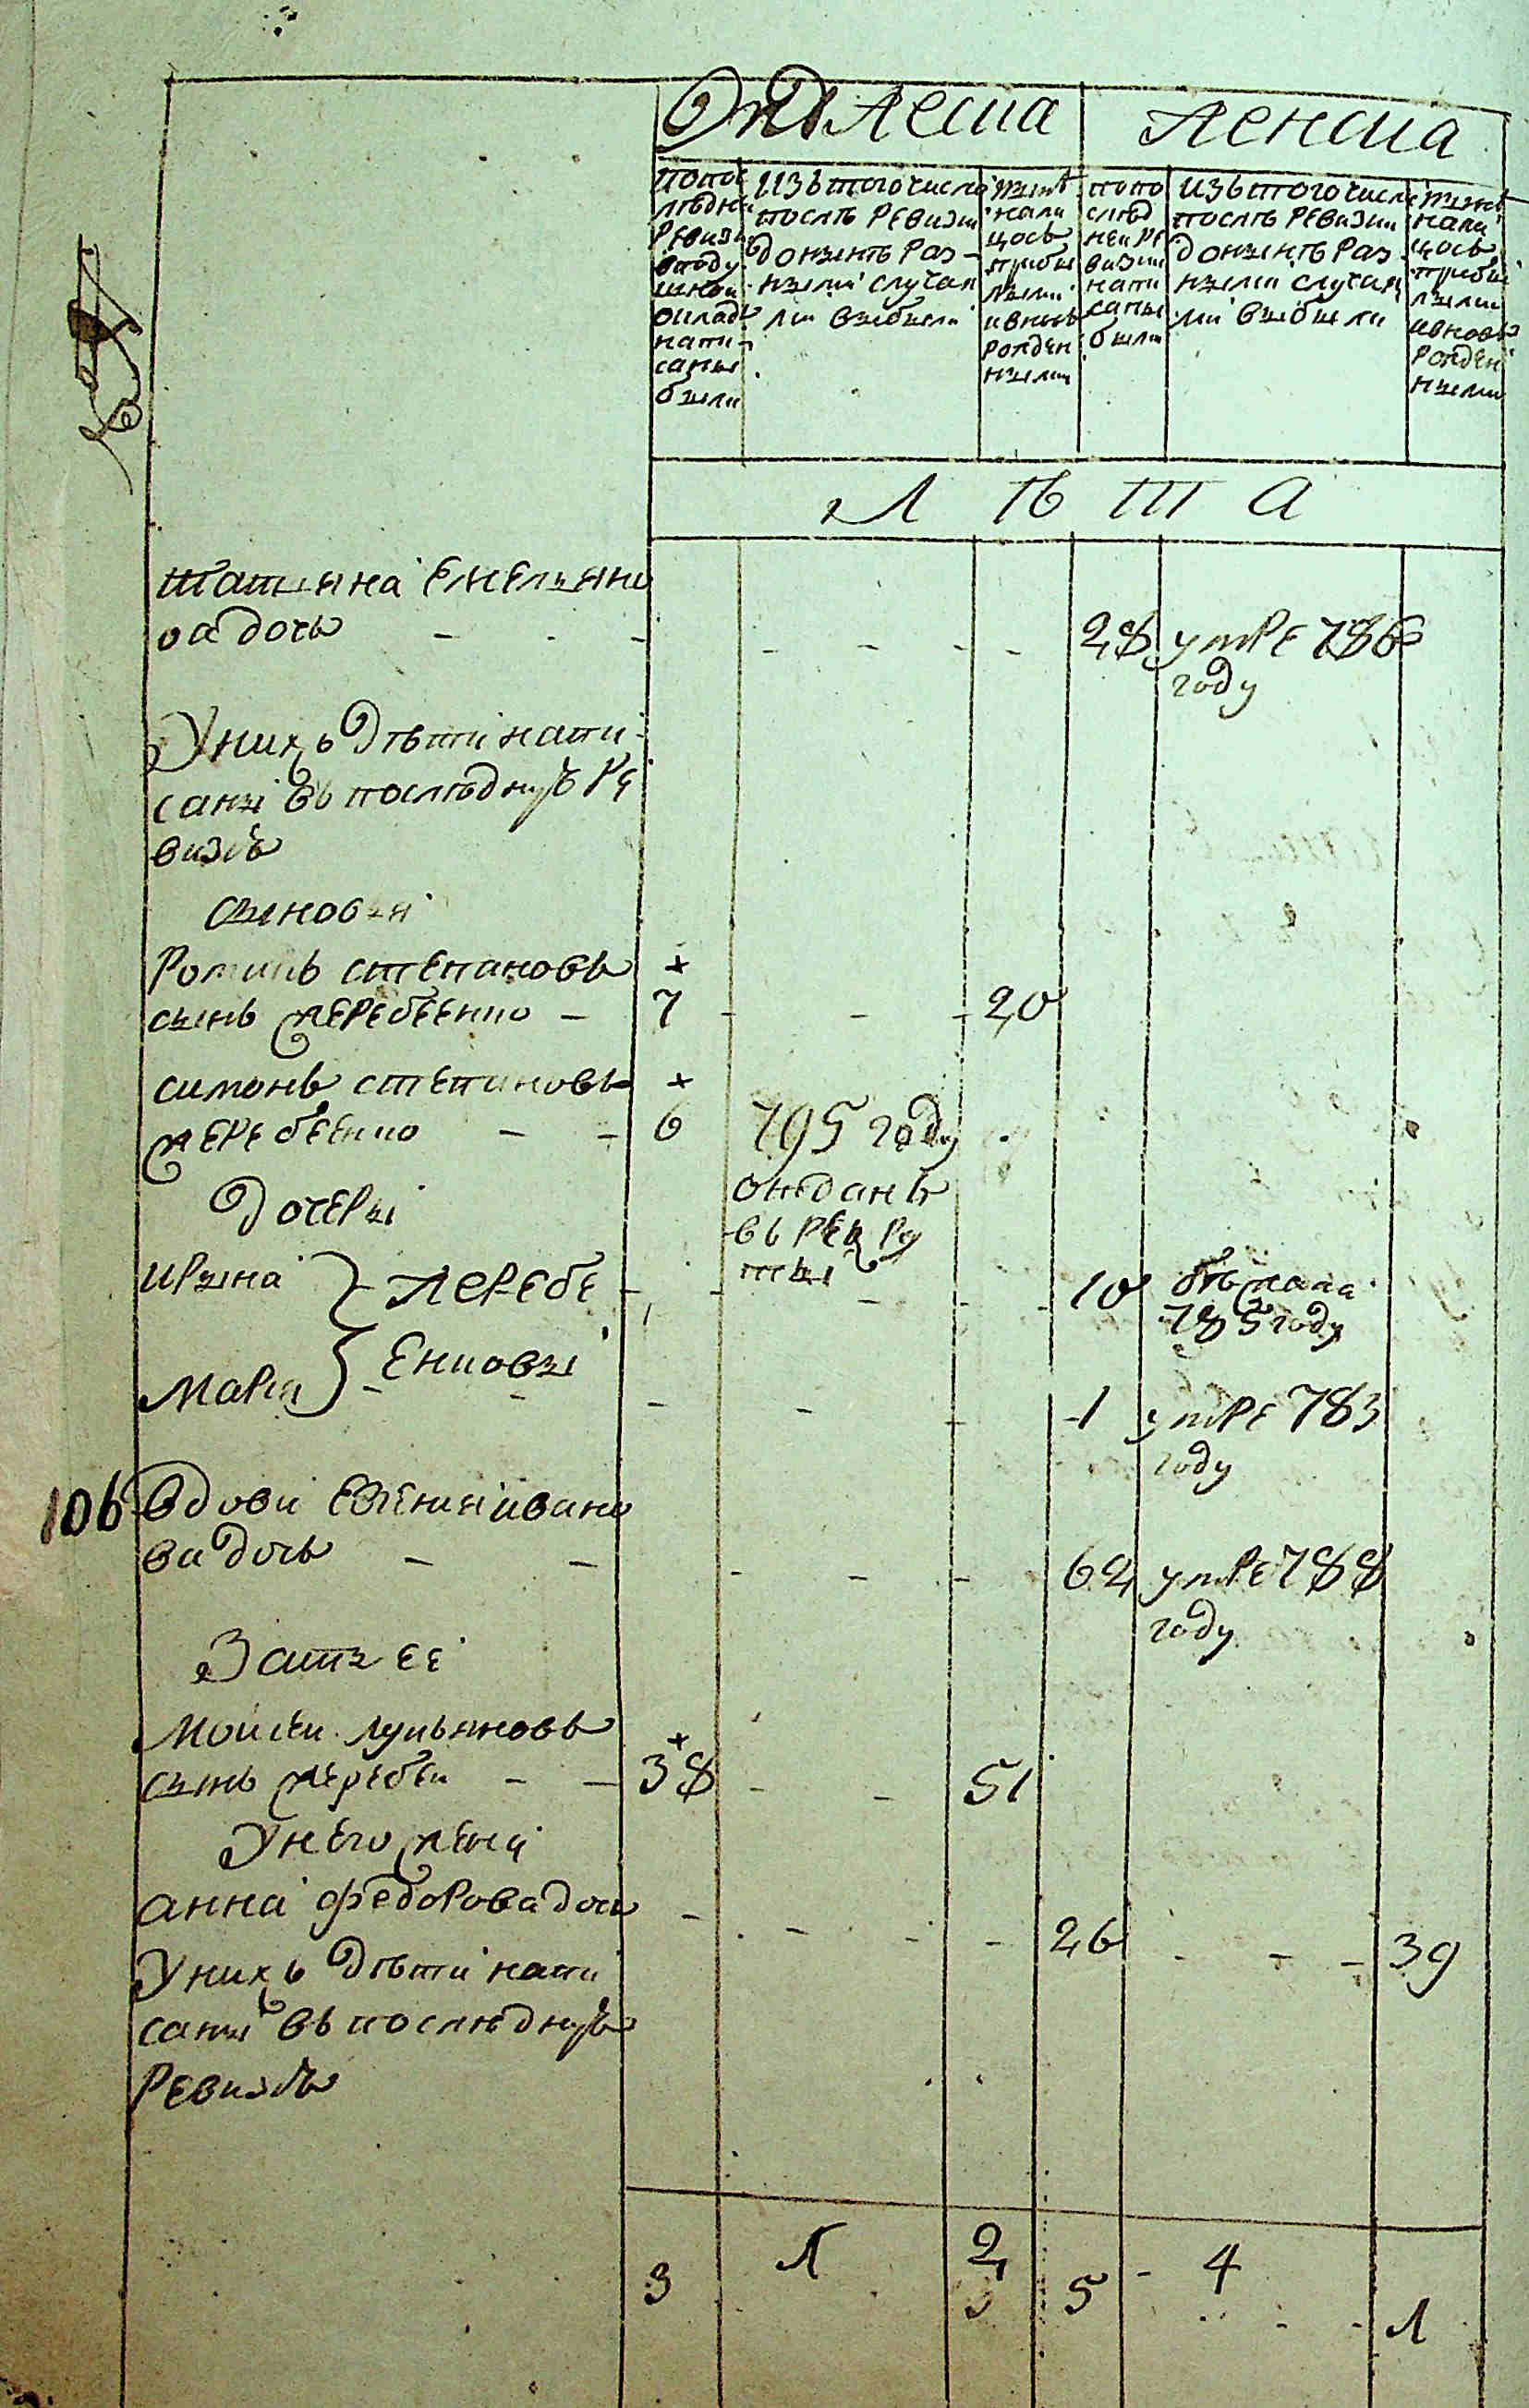 Отдѣлениа
женска
попос
лѣдней
ревизи
в поду
шной
оклад
напи
саны
были
изь того числа
послѣ ревизии
до нынѣ раз
ными случая
ми выбыли
нынѣ
нали
цось
прибы
лыми
и вновь
рожден
ными
попо
слѣд
ней ре
визии
напи
саны
были
изь того числа
послѣ ревизии
до нынѣ раз
ными случая
ми выбыли
нынѣ
нали
цось
прибы
лыми
и вновь
рожден
ными
Л Ѣ Т А
татьяна Емельяно
ва дочь - - - - - - 28 умре 786
году
У нихъ дѣти напи
саны въ последную ре
визѣю
сыновья
Романъ степановъ +
сынъ жеребеенко - 7 - - - 20
симонъ степановъ +
жеребеенко - - 6 795 году
отданъ
въ рекру
ты
дочеры
ирына } жеребе - - - - - 10 бѣжала
785 году
Мариа } Енковы - - - - - 1 умре 783
году
106 вдова Евгения ивано
ва дочь - - - - - 62 умре 788
году
Зать ее
Моисей лукьяновъ +
сынъ жеребей - - 38 - - 51
У него жена
анна федорова дочь - - - - 26 - - - 39
У нихъ дѣти напи
саны въ последную
ревизѣю
3 1 2 5 - 4 1